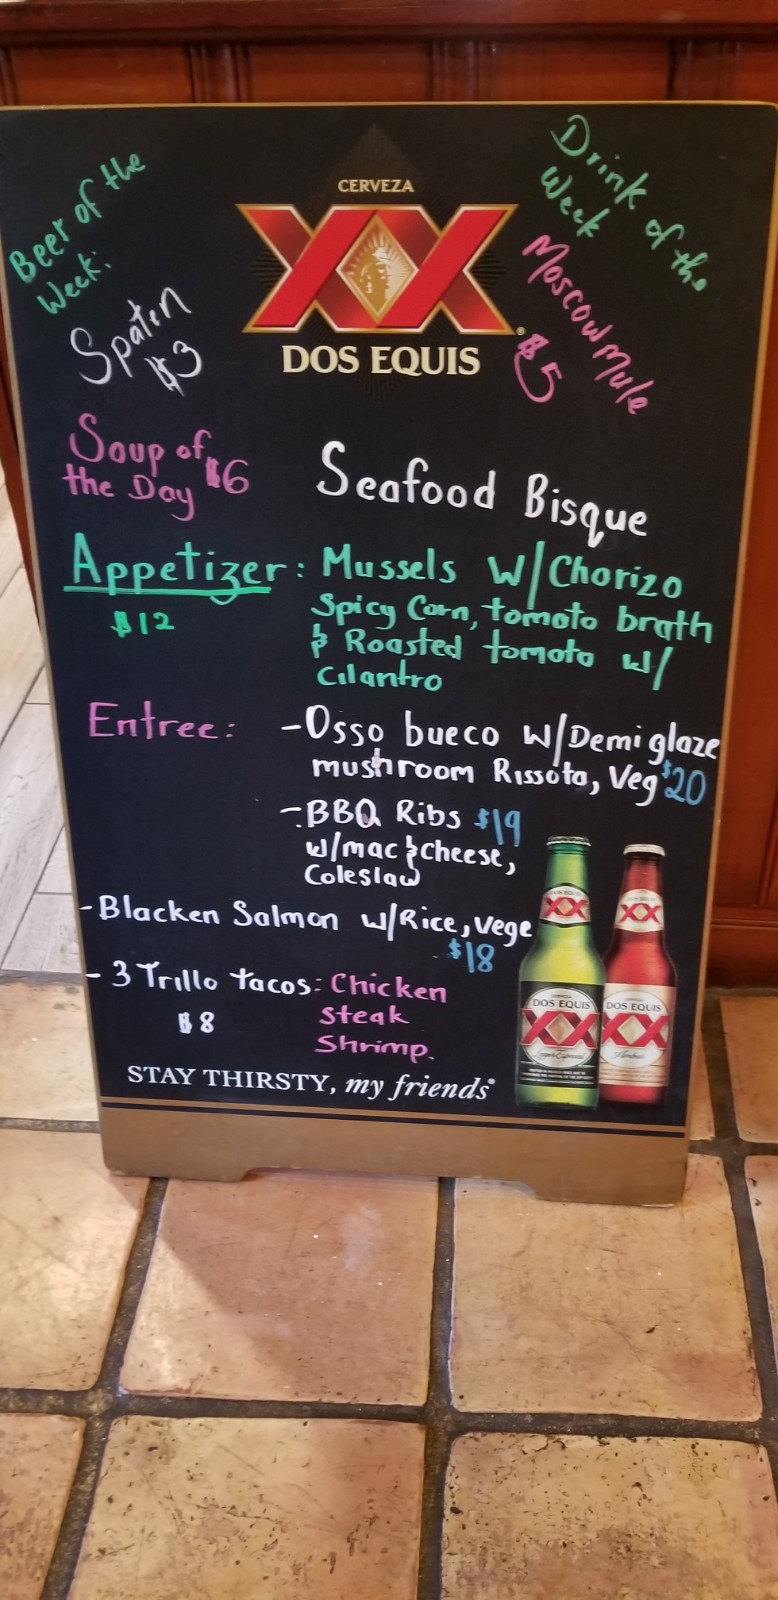 Beer of the
Week:
Spaten
$3
CERVEZA
XX
DOS EQUIS
Drink of the
Week
Moscow Mule
$5
Soup of
the Day $6
Seafood Bisque
Appetizer:
$12
Mussels w/Chorizo
Spicy Corn, tomato brath
& Roasted tomato w/
Cilantro
Entree:
-Osso bueco w/Demi glaze
mushroom Rissota, Veg $20
-BBQ Ribs $19
w/mac & cheese,
Coleslaw
-Blacken Salmon w/Rice, Vege
$18
-3 Trillo tacos: Chicken
$8
Steak
Shrimp.
STAY THIRSTY, my friends®
XX
DOS EQUIS
XX
Lager Especial
XX
DOS EQUIS
XX
Ambar